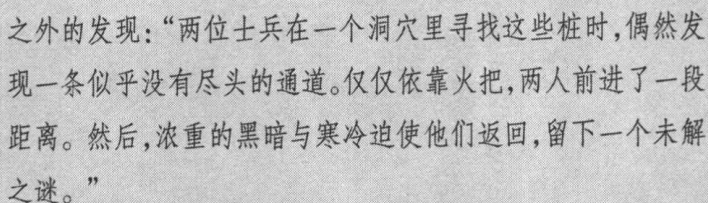 之外的发现：“两位士兵在一个洞穴里寻找这些桩时，偶然发
现一条似乎没有尽头的通道。仅仅依靠火把，两人前进了一段
距离。然后，浓重的黑暗与寒冷迫使他们返回，留下一个未解
之谜。”